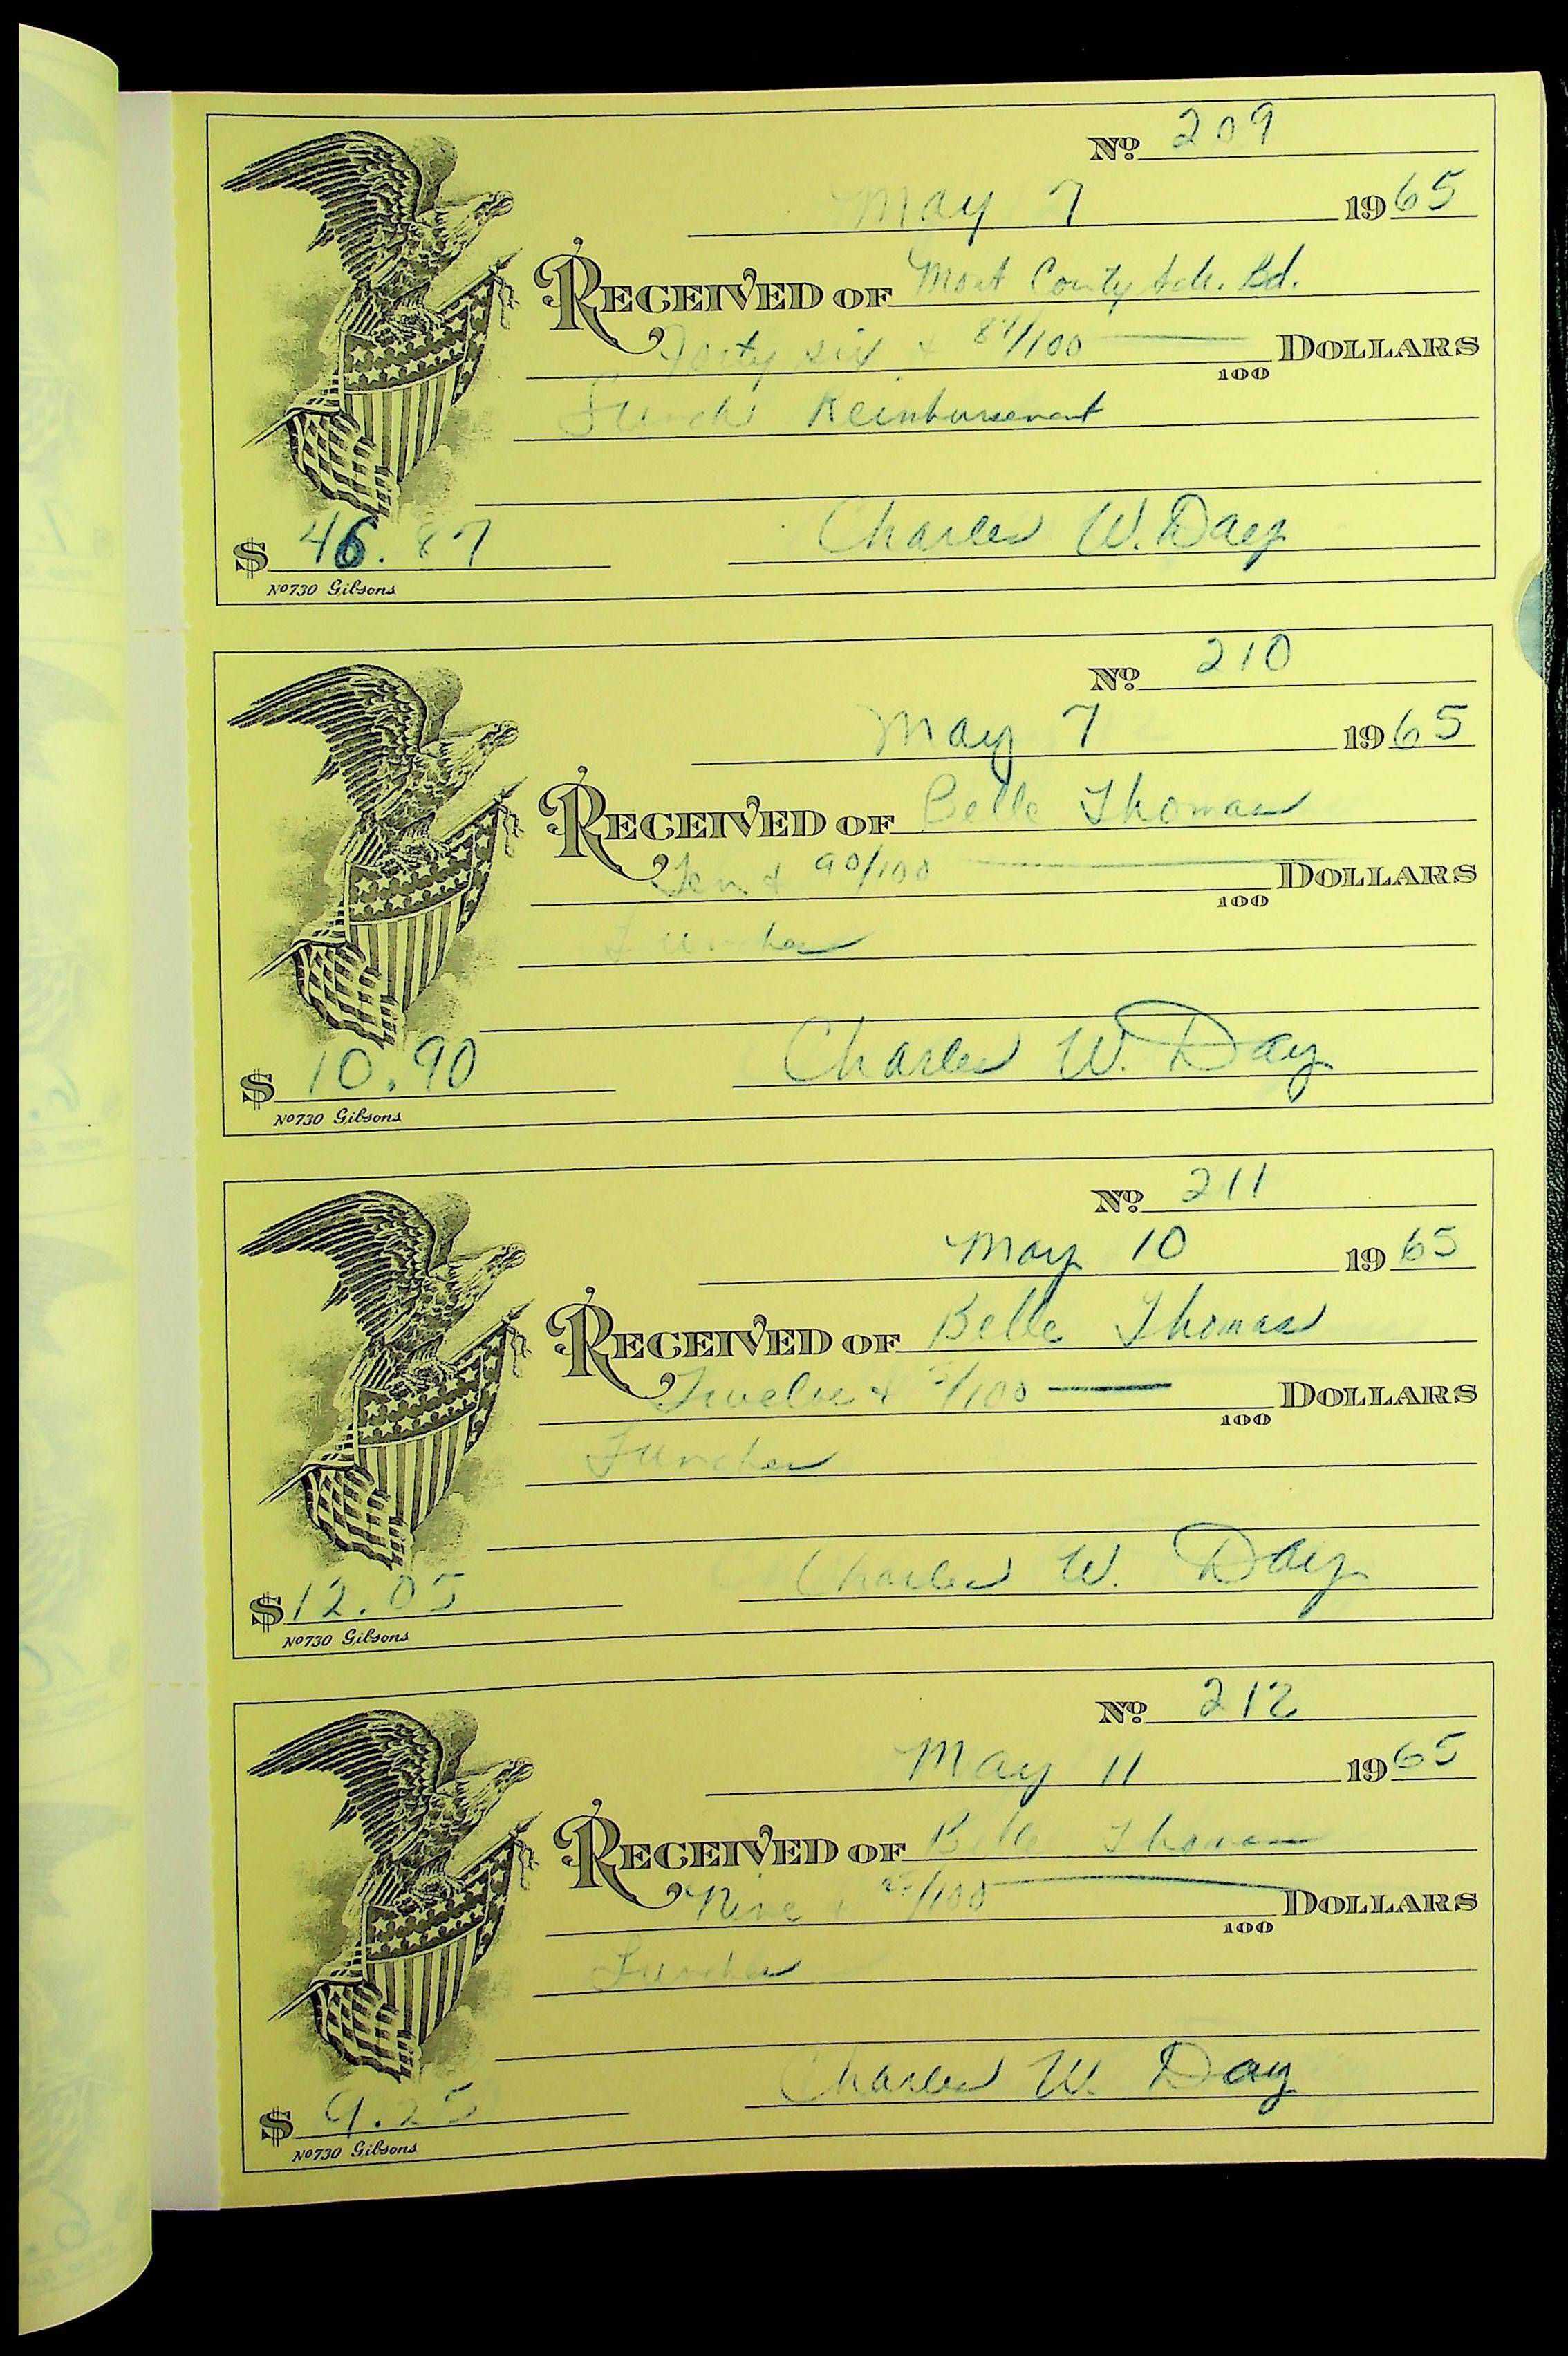 No. 209
May 7 1965
RECEIVED OF Mont County Sch. Bd.
Forty six & 87/100 DOLLARS
100
Lunch Reinbursement
$ 46.87 Charles W. Day
No 730 Gibsons
No. 210
May 7 1965
RECEIVED OF Belle Thomas
Ten & 90/100 DOLLARS
100
Lunches
$ 10.90 Charles W. Day
No 730 Gibsons
No. 211
May 10 1965
RECEIVED OF Belle Thomas
Twelve & 5/100 DOLLARS
100
Lunches
$ 12.05 Charles W. Day
No 730 Gibsons
No. 212
May 11 1965
RECEIVED OF Belle Thomas
Nine & 25/100 DOLLARS
100
Lunches
$ 9.25 Charles W. Day
No 730 Gibsons